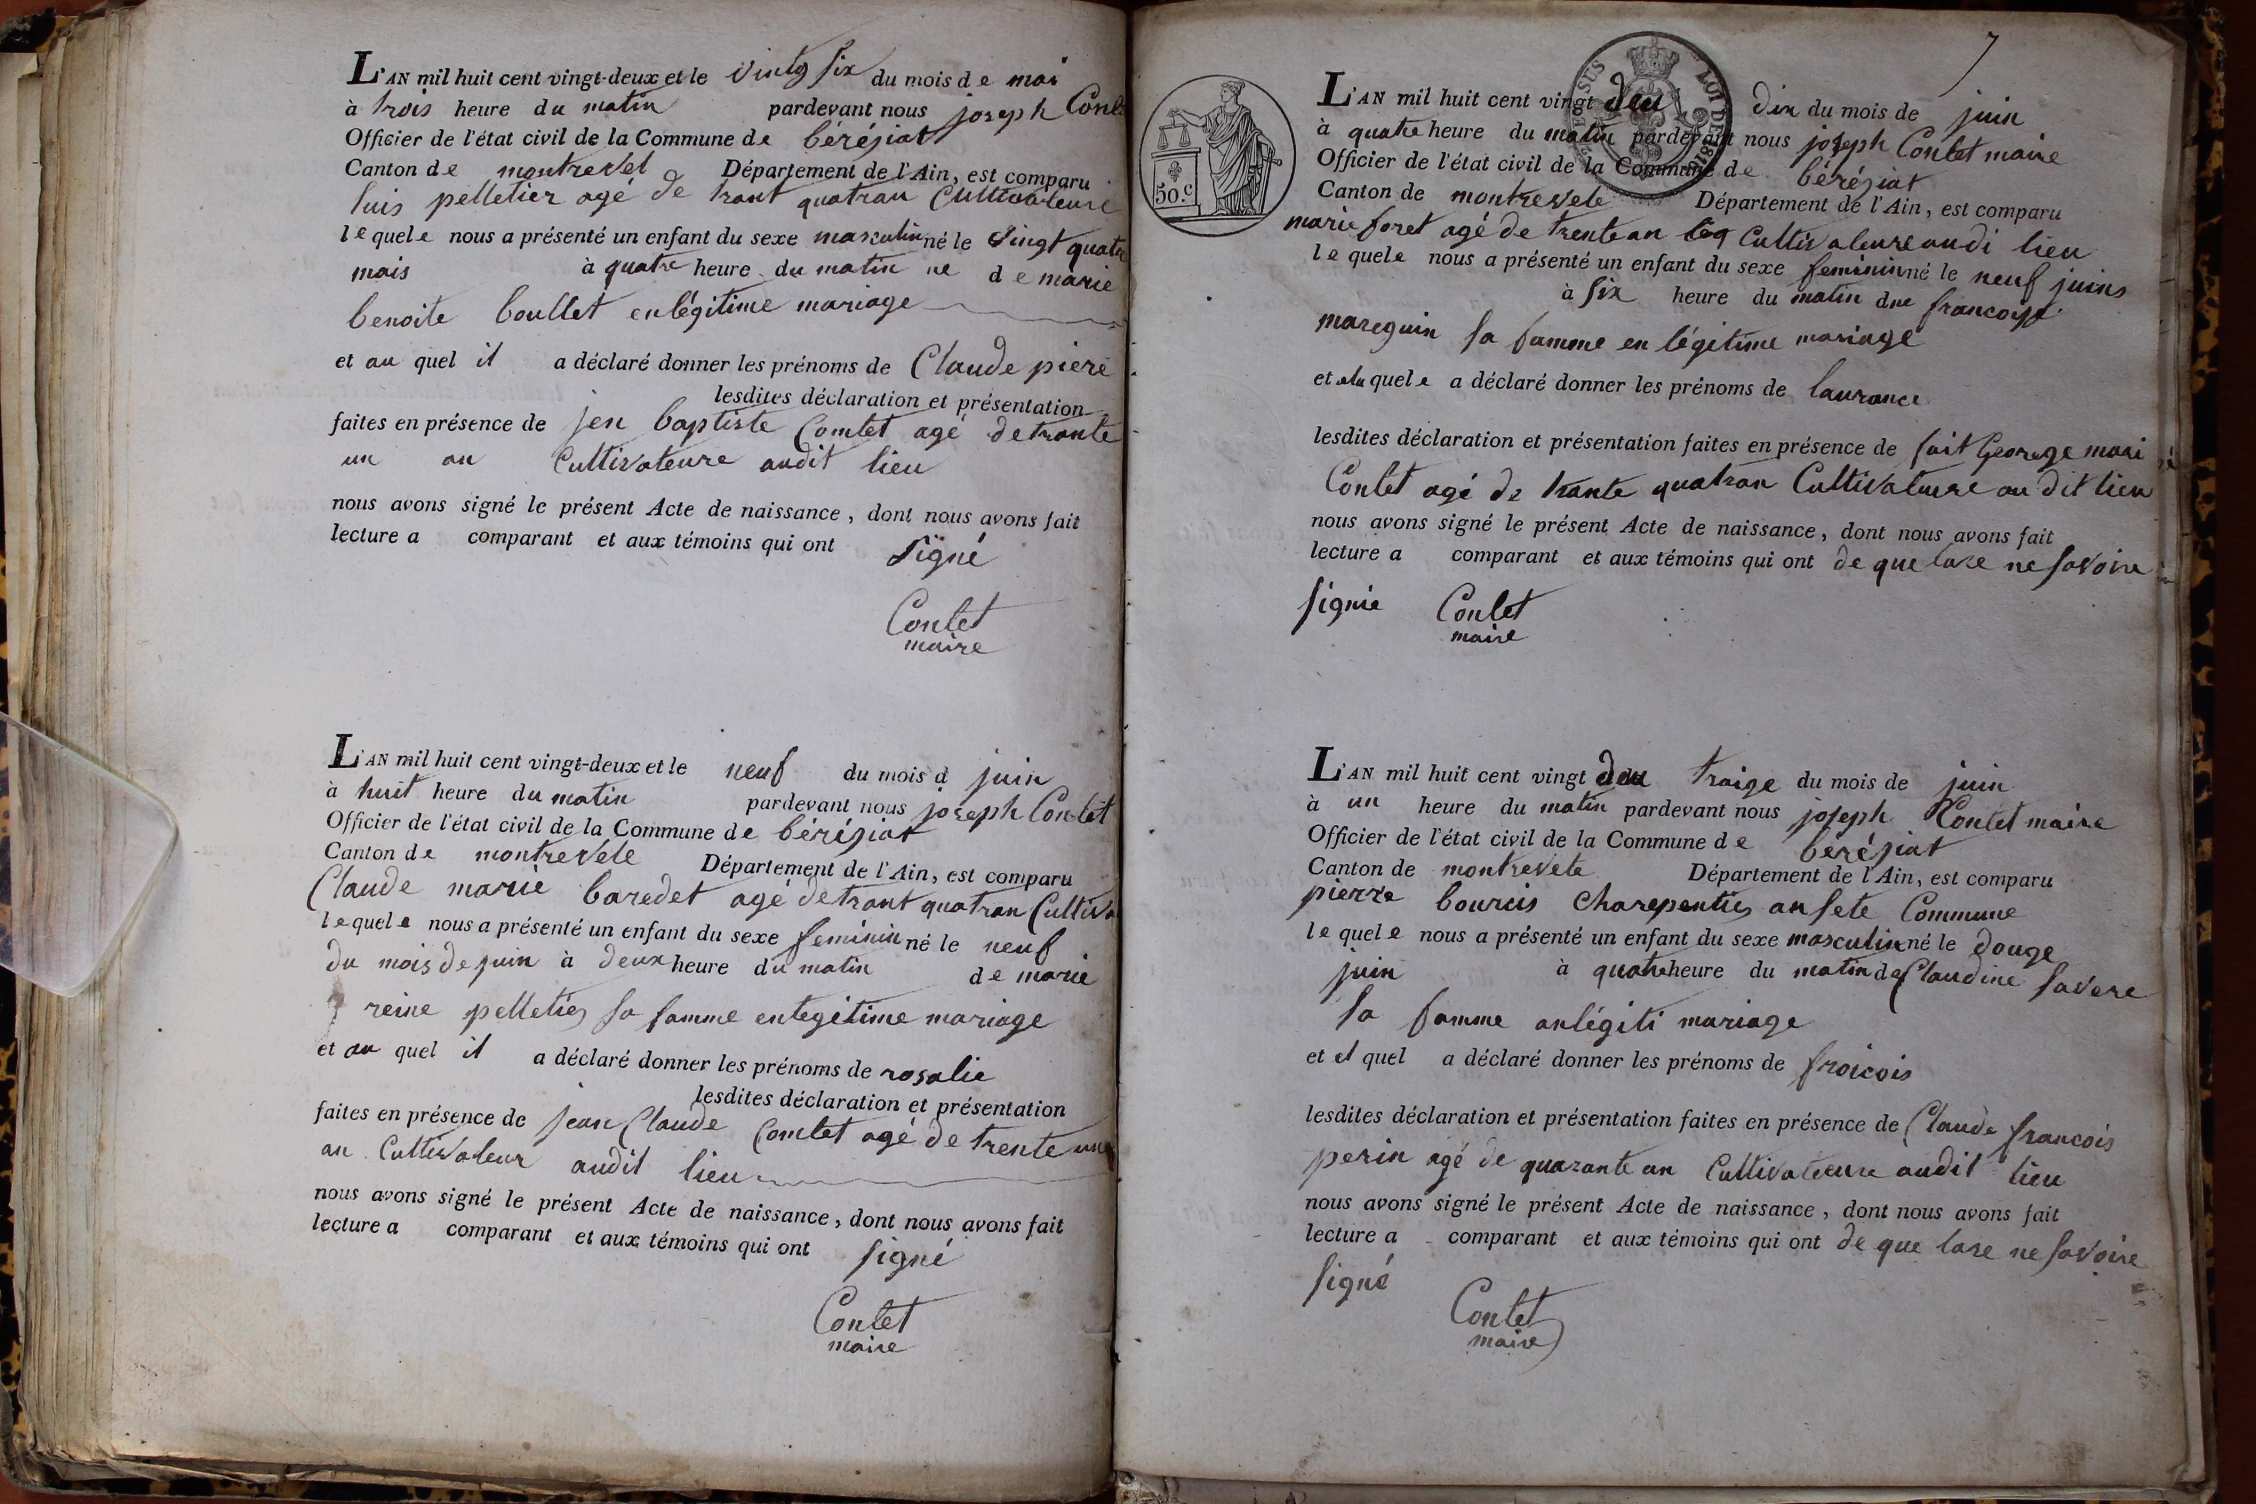 L'AN mil huit cent vingt-deux et le vintg six du mois de mai
à trois heure du matin pardevant nous joseph Conte
Officier de l'état civil de la Commune de béréziat
Canton de montrevel Département de l'Ain, est comparu
luis pelletier agé de trant quatran Cultivateure
lequele nous a présenté un enfant du sexe masculin né le vingt quatre
mais à quatre heure du matin ne de marie
benoite boullet en légitime mariage
et au quel il a déclaré donner les prénoms de Claude piere
lesdites déclaration et présentation
faites en présence de jen baptiste Comtet agé de trante
un an Cultivateure audit lieu
nous avons signé le présent Acte de naissance, dont nous avons fait
lecture a comparant et aux témoins qui ont signé
Contet
maire
L'AN mil huit cent vingt-deux et le neuf du mois d juin
à huit heure du matin pardevant nous joseph Contet
Officier de l'état civil de la Commune de béréziat
Canton de montrevele Département de l'Ain, est comparu
Claude marie baredet agé de trant quatran Cultiva
lequele nous a présenté un enfant du sexe feminin né le neuf
du mois de juin à deux heure du matin de marie
reine pelletier sa famme en legitime mariage
et au quel il a déclaré donner les prénoms de rosalie
lesdites déclaration et présentation
faites en présence de jean Claude Comtet agé de trente un
an Cultivateur audit lieu
nous avons signé le présent Acte de naissance, dont nous avons fait
lecture a comparant et aux témoins qui ont signé
Contet
maire
7
50.c
L'AN mil huit cent vingt deu dix du mois de juin
à quatre heure du matin pardevant nous joseph Contet maire
Officier de l'état civil de la Commune de béréziat
Canton de montrevele Département de l'Ain, est comparu
marie foret agé de trente an Cultivateure audi lieu
lequele nous a présenté un enfant du sexe feminin né le neuf juins
à six heure du matin dne francoise
mareguin sa famme en légitime mariage
et ala quele a déclaré donner les prénoms de laurance
lesdites déclaration et présentation faites en présence de fait George mari
Contet agé de trante quatran Cultivateure au dit lieu
nous avons signé le présent Acte de naissance, dont nous avons fait
lecture a comparant et aux témoins qui ont de que lare ne savoire
signie Contet
maire
L'AN mil huit cent vingt deu traize du mois de juin
à un heure du matin pardevant nous joseph Contet maire
Officier de l'état civil de la Commune de béréziat
Canton de montrevele Département de l'Ain, est comparu
pierre bourcis Charepentier an sete Commune
lequele nous a présenté un enfant du sexe masculin né le douge
juin à quatre heure du matin de Claudine Savere
sa famme anlégiti mariage
et el quel a déclaré donner les prénoms de froicois
lesdites déclaration et présentation faites en présence de Claude francois
perin agé de quarante an Cultivateure audit lieu
nous avons signé le présent Acte de naissance, dont nous avons fait
lecture a comparant et aux témoins qui ont de que lare ne savoire
signé
Contet
maire